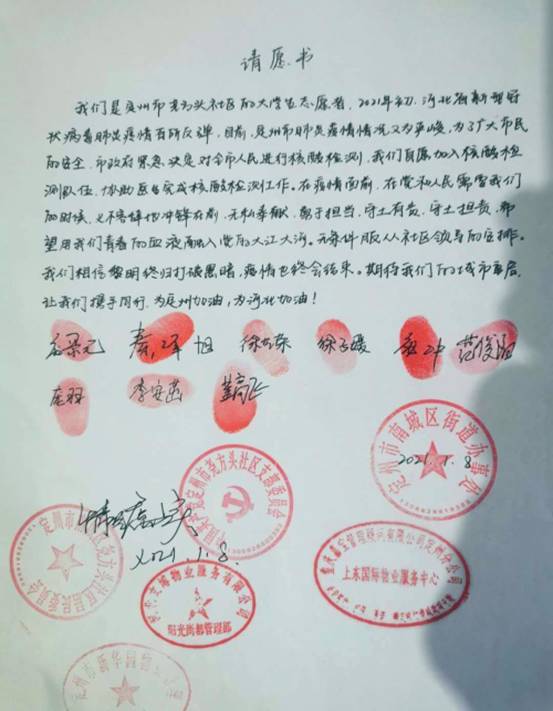 请愿书
我们是定州市尧方头社区的大学生志愿者，2021年初，河北省新型冠
状病毒肺炎疫情有所反弹，目前，定州市肺炎疫情情况又为严峻，为了广大市民
的安全，市政府紧急决定对全市人民进行核酸检测，我们自愿加入核酸检
测队伍，协助医生完成核酸检测工作。在疫情面前，在党和人民需要我们
的时候，义不容辞地冲锋在前，无私奉献，勇于担当，守土有责，守土担责，希
望用我们青春的血液融入党的大江大河。无条件服从社区领导的安排。
我们相信黎明终归打破黑暗，疫情也终会结束。期待我们的城市
让我们携手同行，为定州加油，为河北加油！
秦泽旭 徐
李安茁
定州市南城区街道办事处
2021.1.8
中国共产党定州市尧方头社区支部委员会
定州市 尧方头社区居民委员会
情况属实
2021.1.8.
物业服务有限公司
阳光尚都管理部
管理顾问有限公司定州分公司
上东国际物业服务中心
定州市新华园物业